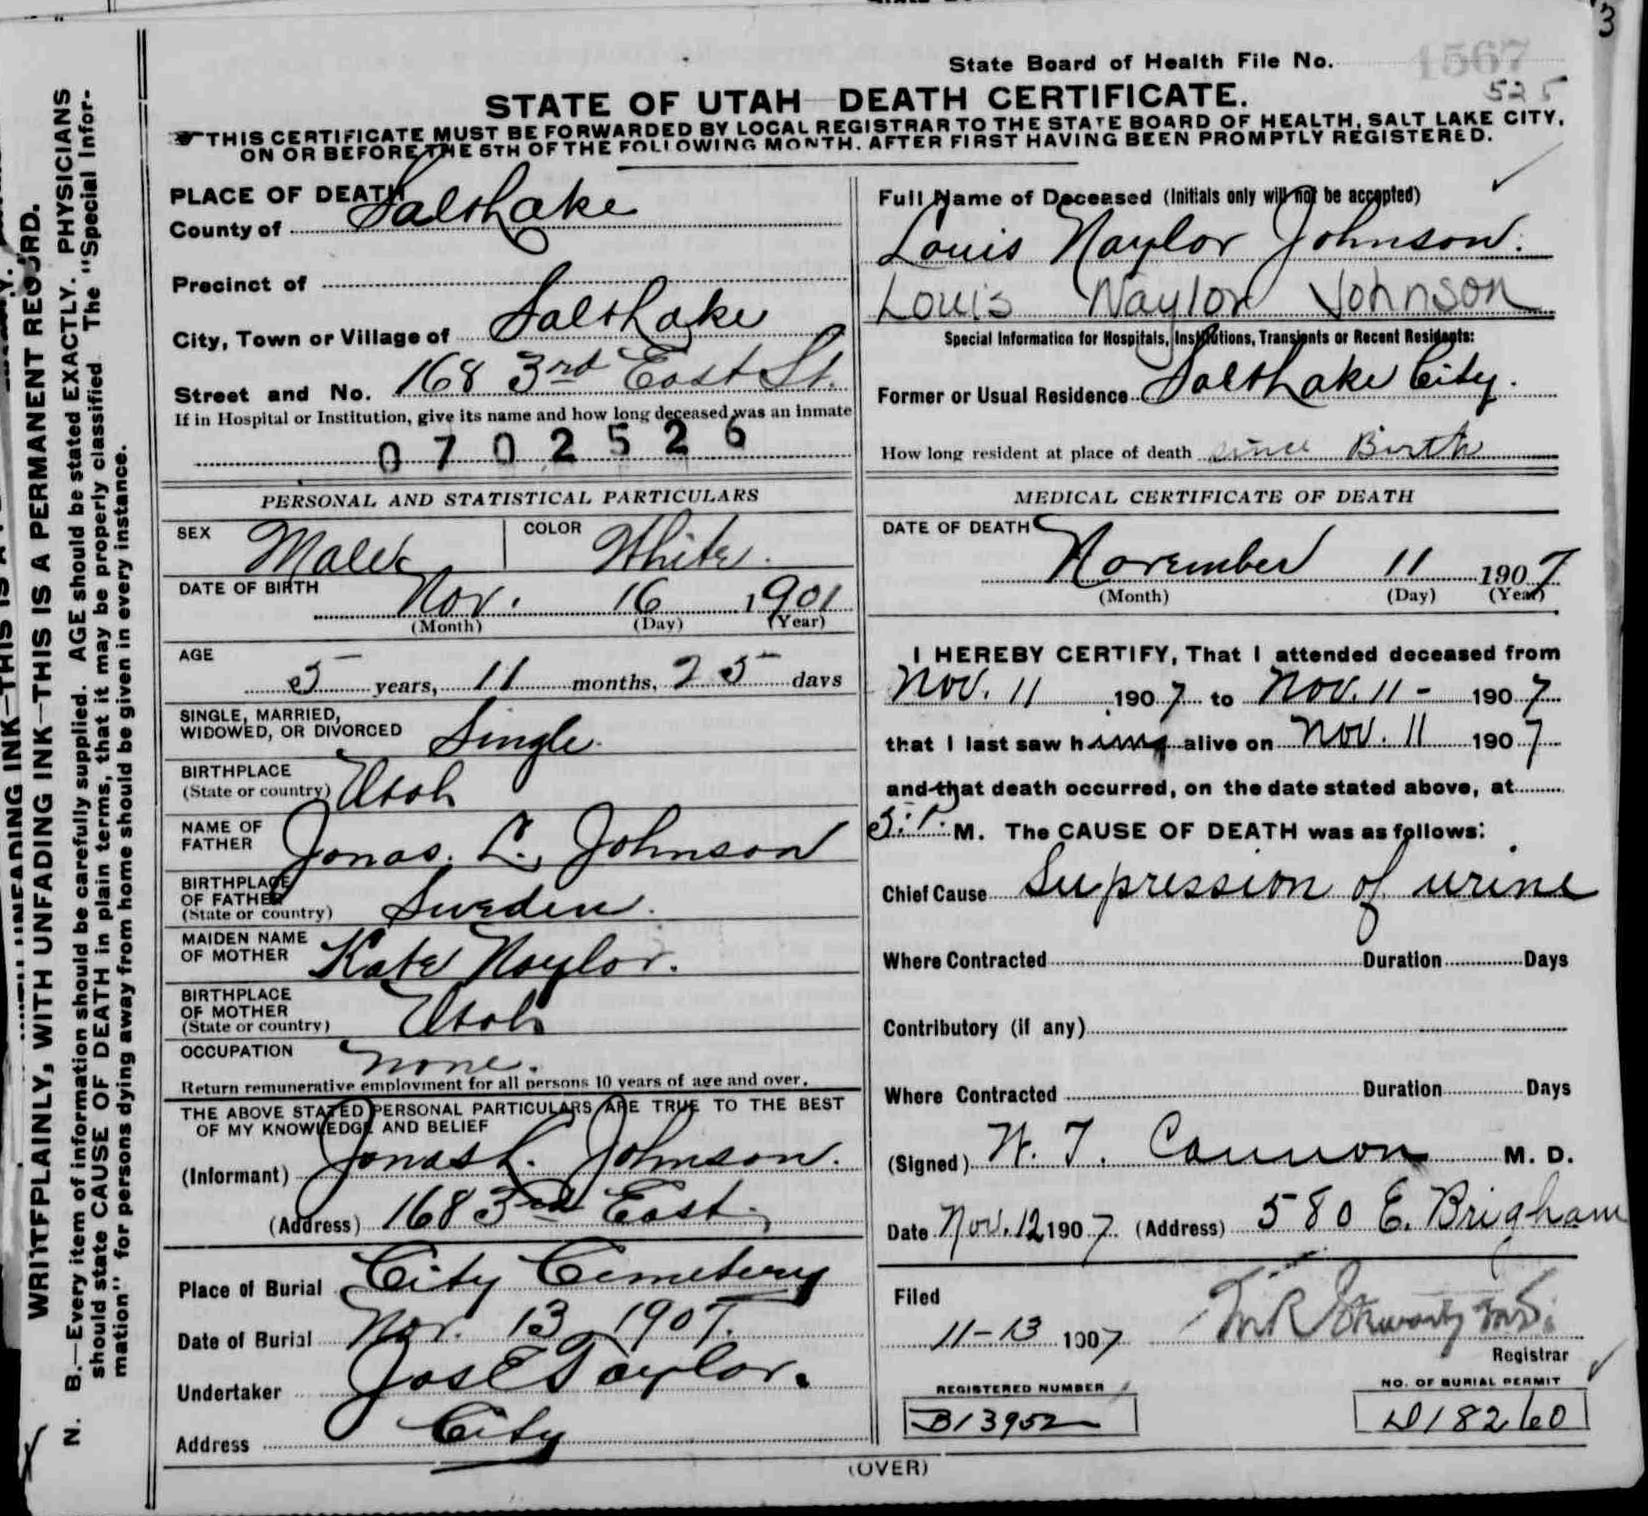 3
State Board of Health File No. 1567
525
STATE OF UTAH—DEATH CERTIFICATE.
THIS CERTIFICATE MUST BE FORWARDED BY LOCAL REGISTRAR TO THE STATE BOARD OF HEALTH, SALT LAKE CITY,
ON OR BEFORE THE 5TH OF THE FOLLOWING MONTH. AFTER FIRST HAVING BEEN PROMPTLY REGISTERED.
WRITE PLAINLY, WITH UNFADING INK—THIS IS A PERMANENT RECORD.
N. B.—Every item of information should be carefully supplied. AGE should be stated EXACTLY. PHYSICIANS
should state CAUSE OF DEATH in plain terms, that it may be properly classified. The "Special Infor-
mation" for persons dying away from home should be given in every instance.
PLACE OF DEATH
County of Salt Lake
Precinct of
City, Town or Village of Salt Lake
Street and No. 168 3rd East St.
If in Hospital or Institution, give its name and how long deceased was an inmate
0702526
PERSONAL AND STATISTICAL PARTICULARS
SEX Male
COLOR White.
DATE OF BIRTH
Nov. 16 1901
(Month) (Day) (Year)
AGE
5 years, 11 months, 25 days
SINGLE, MARRIED,
WIDOWED, OR DIVORCED Single.
BIRTHPLACE
(State or country) Utah
NAME OF
FATHER Jonas. L. Johnson
BIRTHPLACE
OF FATHER
(State or country) Sweden.
MAIDEN NAME
OF MOTHER Kate Naylor.
BIRTHPLACE
OF MOTHER
(State or country) Utah
OCCUPATION none.
Return remunerative employment for all persons 10 years of age and over.
THE ABOVE STATED PERSONAL PARTICULARS ARE TRUE TO THE BEST
OF MY KNOWLEDGE AND BELIEF
(Informant) Jonas L. Johnson.
(Address) 168 3rd East.
Place of Burial City Cemetery
Date of Burial Nov. 13 1907.
Undertaker Jos E Taylor.
Address City
Full Name of Deceased (Initials only will not be accepted)
Louis Naylor Johnson.
Louis Naylor Johnson
Special Information for Hospitals, Institutions, Transients or Recent Residents:
Former or Usual Residence Salt Lake City.
How long resident at place of death since Birth
MEDICAL CERTIFICATE OF DEATH
DATE OF DEATH
November 11 1907
(Month) (Day) (Year)
I HEREBY CERTIFY, That I attended deceased from
Nov. 11 1907 to Nov. 11 - 1907
that I last saw him alive on Nov. 11 1907
and that death occurred, on the date stated above, at
5:P. M. The CAUSE OF DEATH was as follows:
Chief Cause Supression of urine
Where Contracted Duration Days
Contributory (if any)
Where Contracted Duration Days
(Signed) W. T. Cannon M. D.
Date Nov. 12 1907 (Address) 580 E. Brigham
Filed
11-13 1907
Registrar
REGISTERED NUMBER
B13952
NO. OF BURIAL PERMIT
D18260
(OVER)